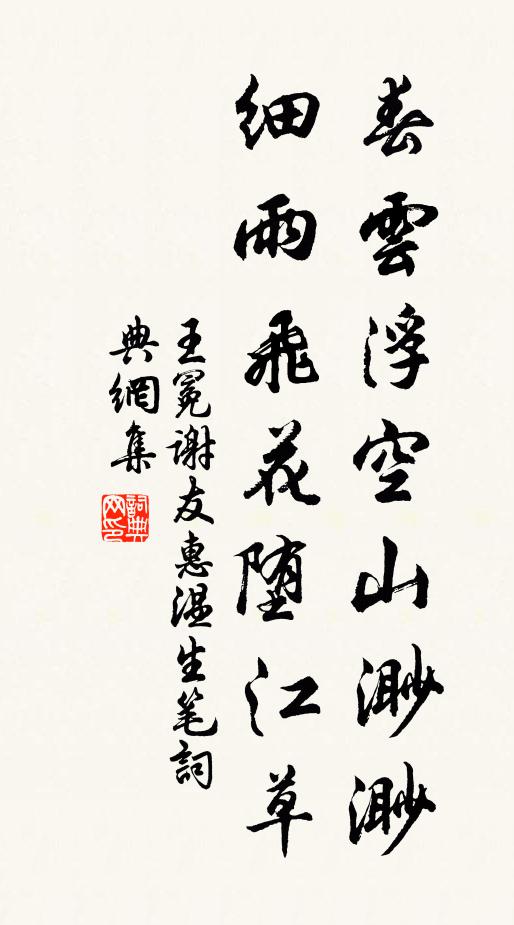 春雲浮空山渺渺
細雨飛花堕江草
王冕謝友惠温生笔詞
典網集
詞典
网印